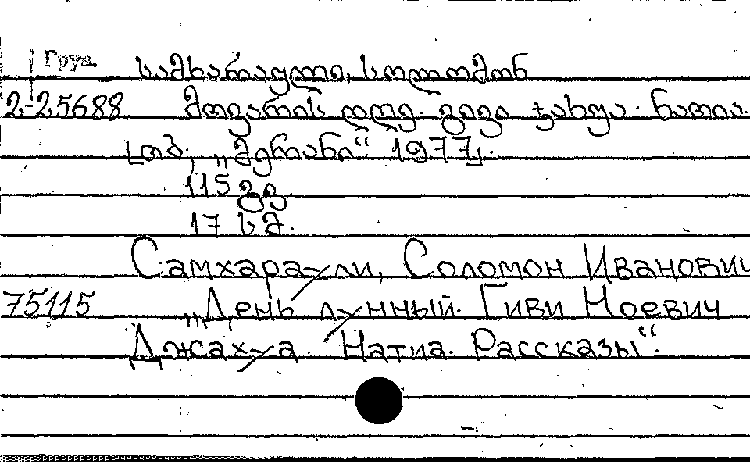 Груз.
სამხარაული, სოლომონ
2-25688 მთვარის დღე. გივი ჯახუა. ნათია.
თბ., „მერანი“ 1977წ.
115 გვ
17 სმ.
Самхараули, Соломон Иванович
75115 „День лунный. Гиви Ноевич
Джахуа Натиа. Рассказы“.